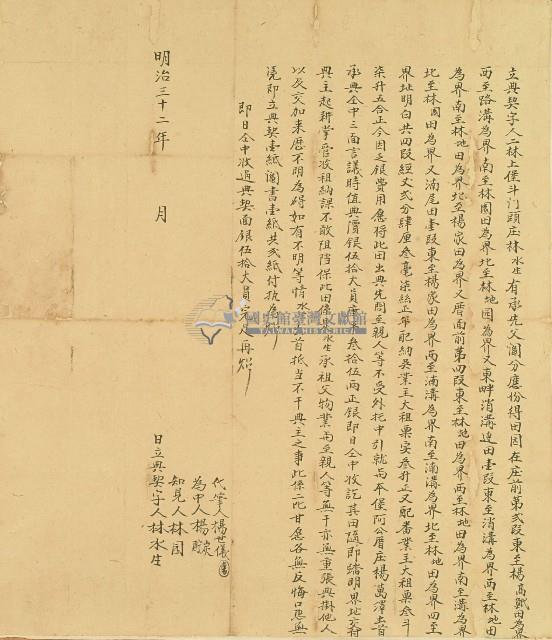 立典契字人二林上堡斗門頭庄林水生有承先父鬮分應份得田園在庄前第弍段東至楊高賦田為界
西至路溝為界南至林園田為界北至林地園為界又東畔消溝邊田壹段東至消溝為界西至林地田
為界南至林地田為界北至楊家田為界又厝面前第四段東至林地田為界西至林地田為界南至溝為界
北至林園田為界又湳尾田壹段東至楊家田為界西至湳溝為界南至湳溝為界北至林地田為界四至
界址明白共四段經丈弍分肆厘叁毫柒絲正年配納吳業主大租粟叁斗又配番業主大租粟叁斗
柒升五合正今因乏銀費用愿將此田出典先問至親人等不受外托中引就與本堡阿公厝庄楊萬澤出首
承典仝中三面言議時值典價銀伍拾大員庄叁拾伍兩正銀即日仝中收訖其田隨即踏明界址交付
典主起耕掌管收租納課不敢阻擋保此田係水生承祖父物業與至親人等無干亦無重張典掛他人
以及交加來歷不明為碍如有不明等情水出首抵當不干典主之事此係二比甘愿各無反悔口恐無
憑即立典契壹紙鬮書壹紙共弍紙付執為炤
即日仝中收過典契面銀伍拾大員完人再炤
國史館臺灣文獻館
TAIWAN HISTORICA
明治三十二年 月
代筆人楊世儀
為中人楊貯
知見人林園
日立典契字人林水生